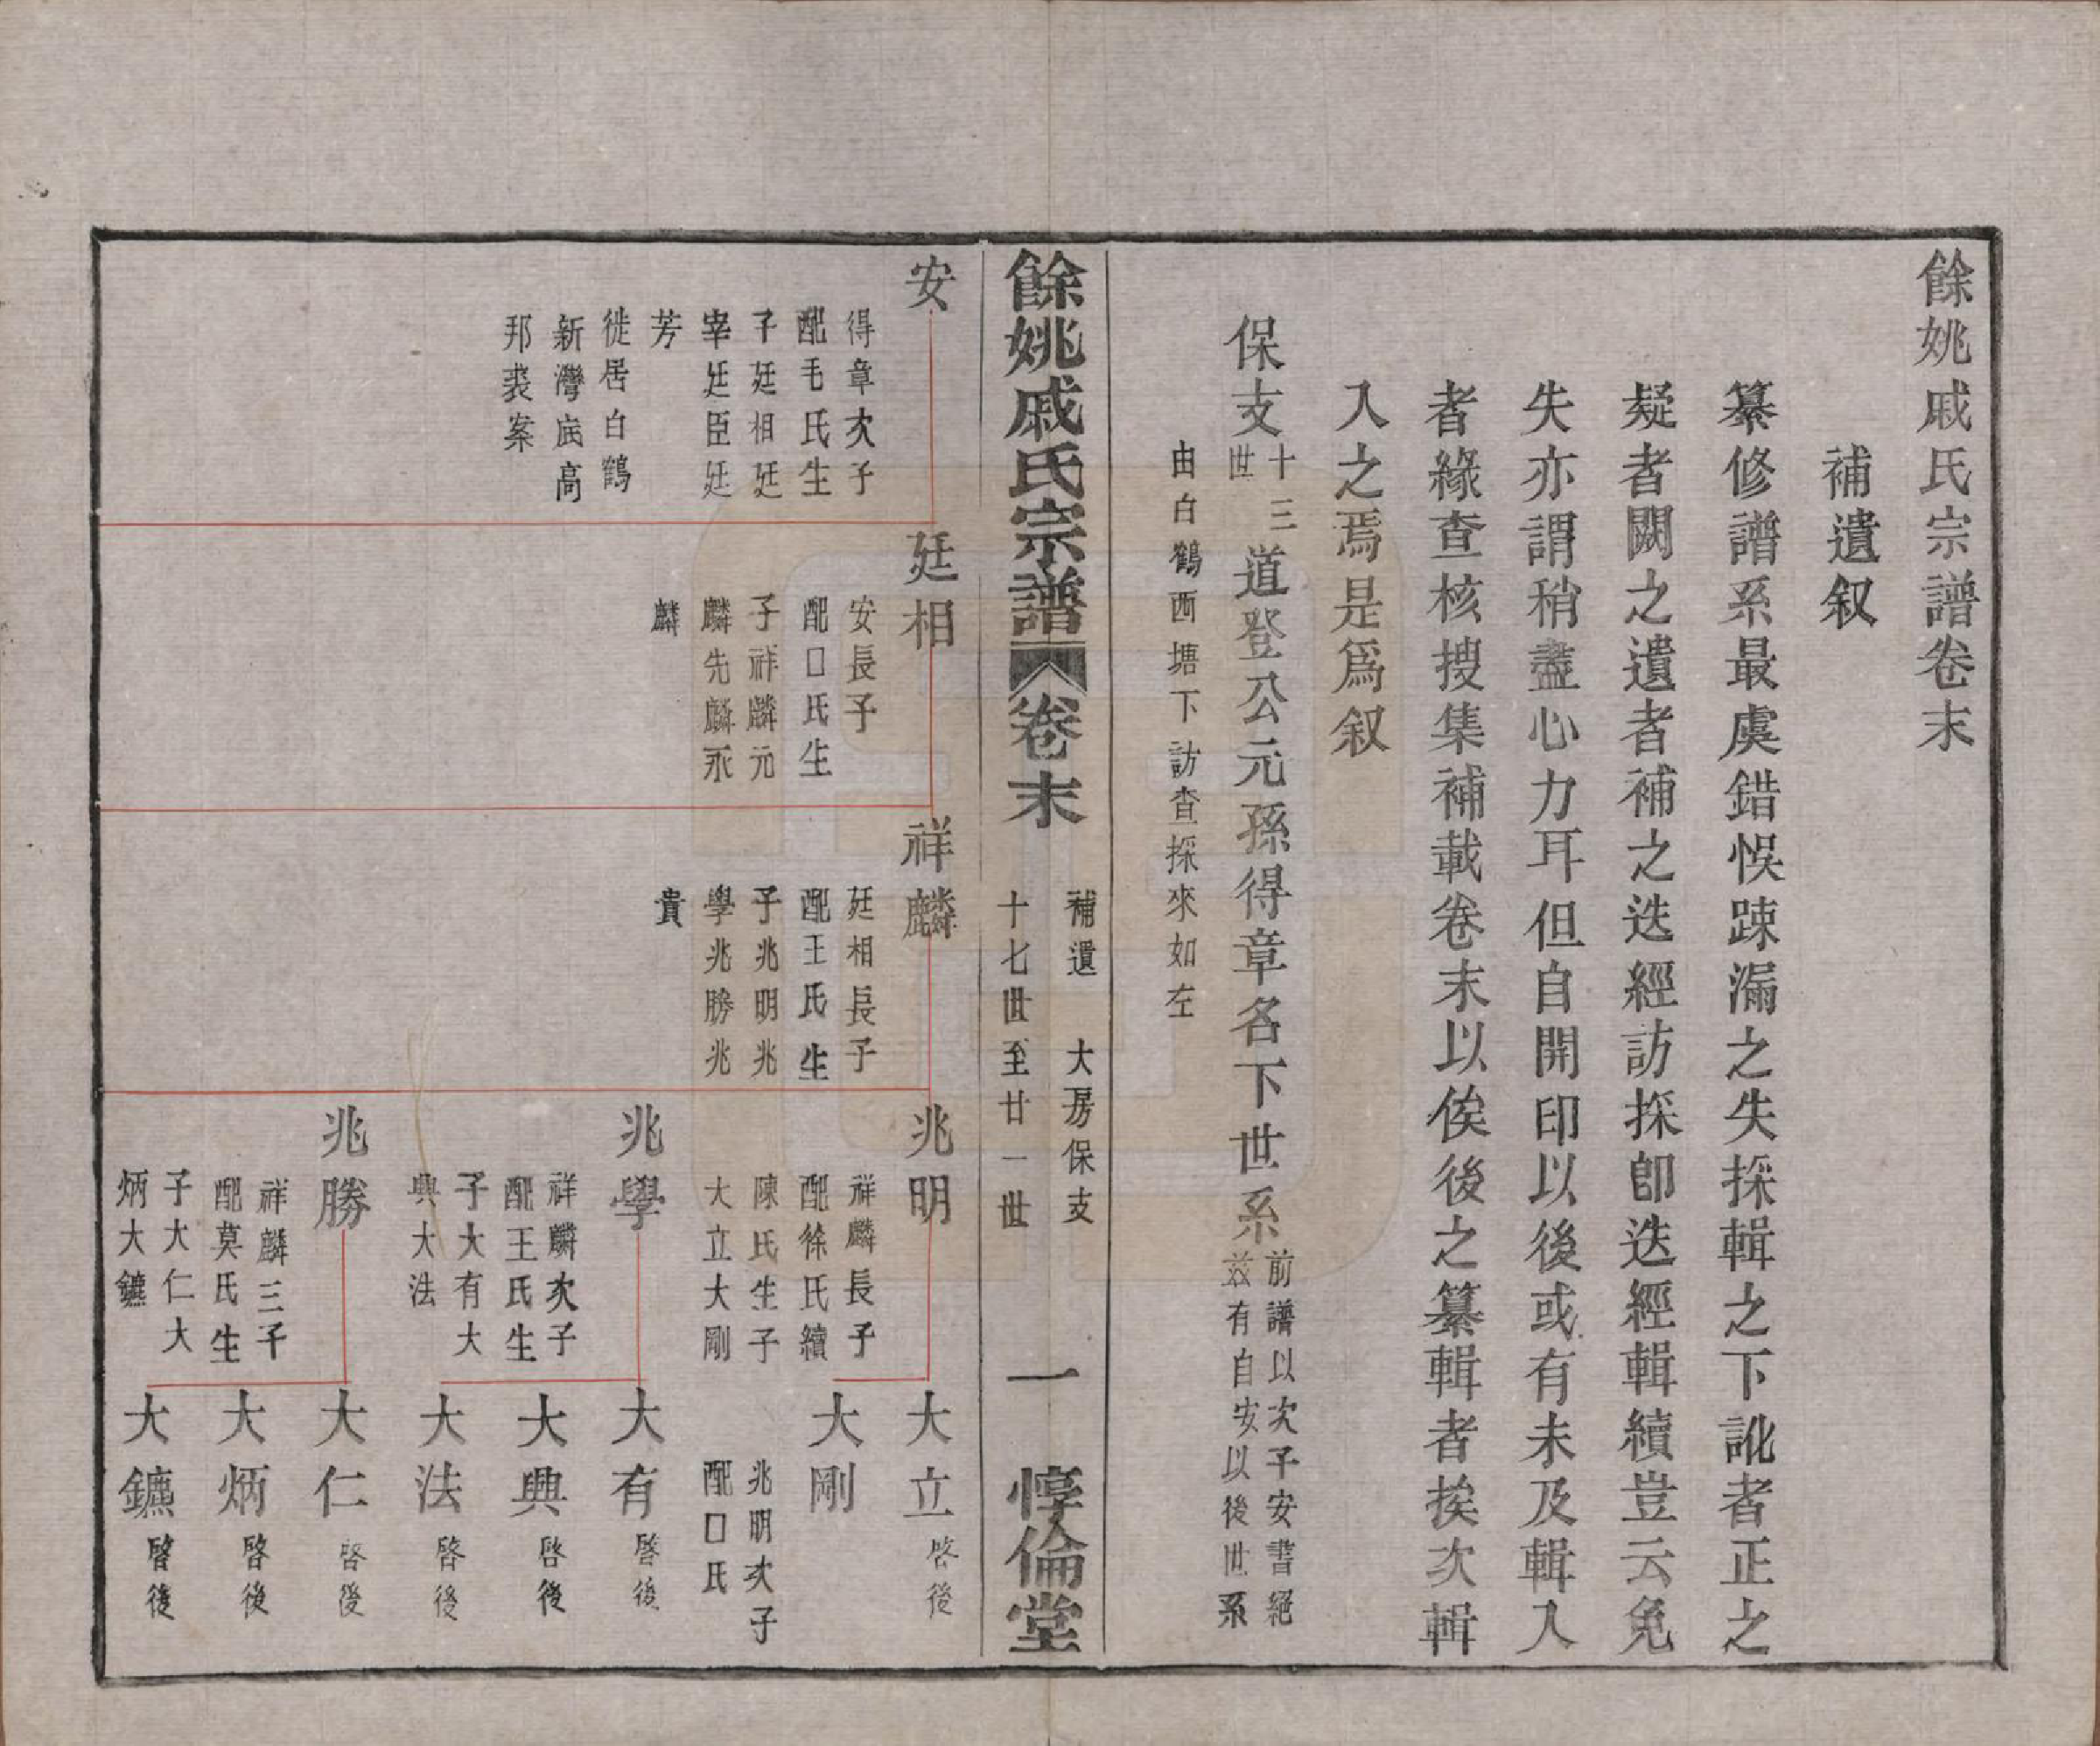 餘姚戚氏宗譜卷末
補遺叙
纂修譜系最虞錯悞踈漏之失採輯之下訛者正之
疑者闕之遺者補之迭經訪採卽迭經輯續豈云免
失亦謂稍盡心力耳但自開印以後或有未及輯入
者緣查核搜集補載卷末以俟後之纂輯者挨次輯
入之焉是爲叙
保支十三世道登公元孫得章名下世系前譜以次子安書絕兹有自安以後世系
由白鶴西塘下訪查採來如左
餘姚戚氏宗譜 卷末 補遺 大房保支 十七世至廿一世 一 惇倫堂
安
得章次子
配毛氏生
子廷相廷
宰廷臣廷
芳
徙居白鶴
新灣底高
邦裘案
廷相
安長子
配口氏生
子祥麟元
麟先麟永
麟
祥麟
廷相長子
配王氏生
子兆明兆
學兆勝兆
貴
兆明
祥麟長子
配徐氏續
陳氏生子
大立大剛
兆學
祥麟次子
配王氏生
子大有大
興大法
兆勝
祥麟三子
配莫氏生
子大仁大
炳大鑣
大立 啓後
大剛
兆明次子
配口氏
大有 啓後
大興 啓後
大法 啓後
大仁 啓後
大炳 啓後
大鑣 啓後